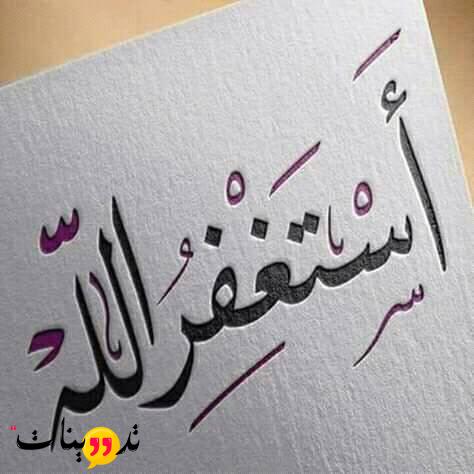 أَسْتَغْفِرُ اللّه
تدوينات